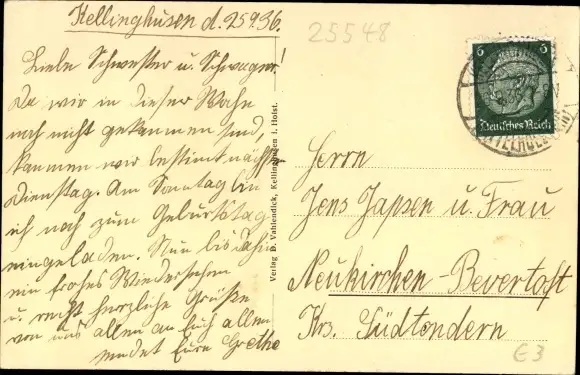 Kellinghusen d. 25.9.36.
Liebe Schwester u. Schwager!
Da wir in dieser Wohe
noch nicht gekommen sind,
kommen wir bestimt nächste
Dienstag. Am Sonntag bin
ich noch zum Geburtstag
eingeladen. Nun bis dahin
ein frohes Wiedersehen
u. recht herzliche Grüße
von uns allen an Euch allen
sendet Eure Grethe
Verlag D. Vahlendick, Kellinghusen i. Holst.
25548
6 6
Deutsches Reich
Herrn
Jens Japsen u. Frau
Neukirchen-Bevertoft
Krs. Südtondern
€3